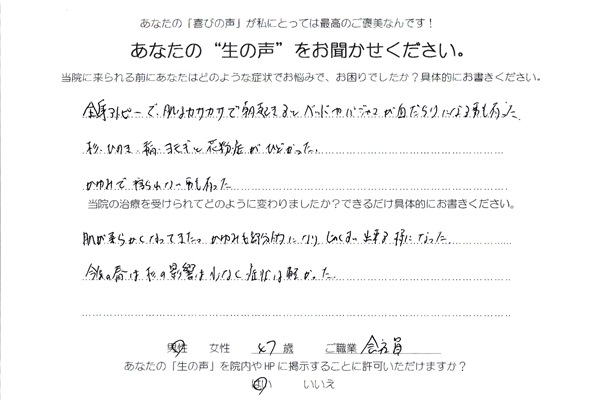 あなたの「喜びの声」が私にとっては最高のご褒美なんです！
あなたの“生の声”をお聞かせください。
当院に来られる前にあなたはどのような症状でお悩みで、お困りでしたか？具体的にお書きください。
全身アトピーで、肌はカサカサで朝起きるとベッドカバー が血だらけになる事も有った
杉、ひのき、稲、ヨモギと花粉症がひどかった。
かゆみで寝られない事も有った
当院の治療を受けられてどのように変わりましたか？できるだけ具体的にお書きください。
肌が柔らかくなってきた。かゆみも部分的になり 出来る様になった
今年の春は杉の影響は少なく症状は軽かった。
男性 女性 47歳 ご職業 会社員
あなたの「生の声」を院内やHPに掲示することに許可いただけますか？
はい いいえ